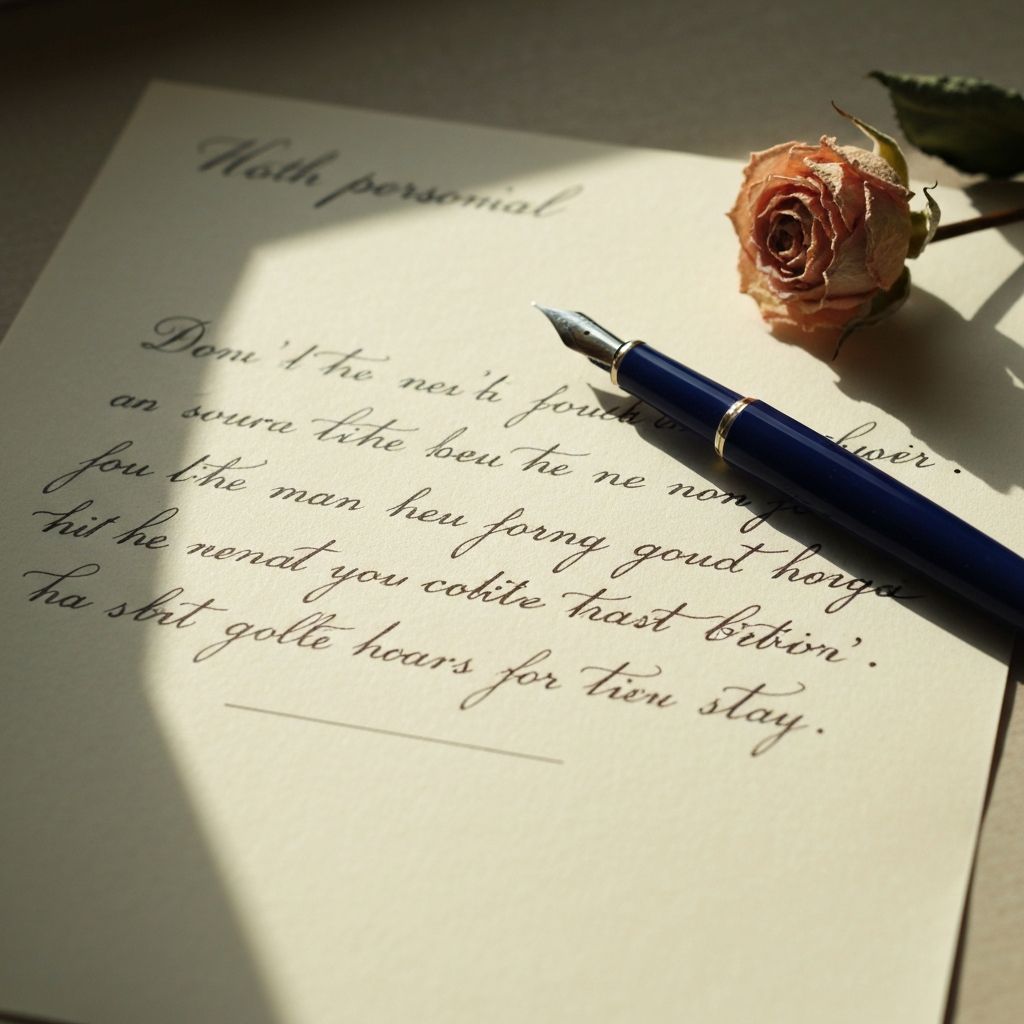 Hoth personial
Dom't the nex'ti
an soura tithe beu the ne non
fou l'the man heu forng goud horga
hit he nenat you cobite trast
ha sbit golle hoars for tieu stay.